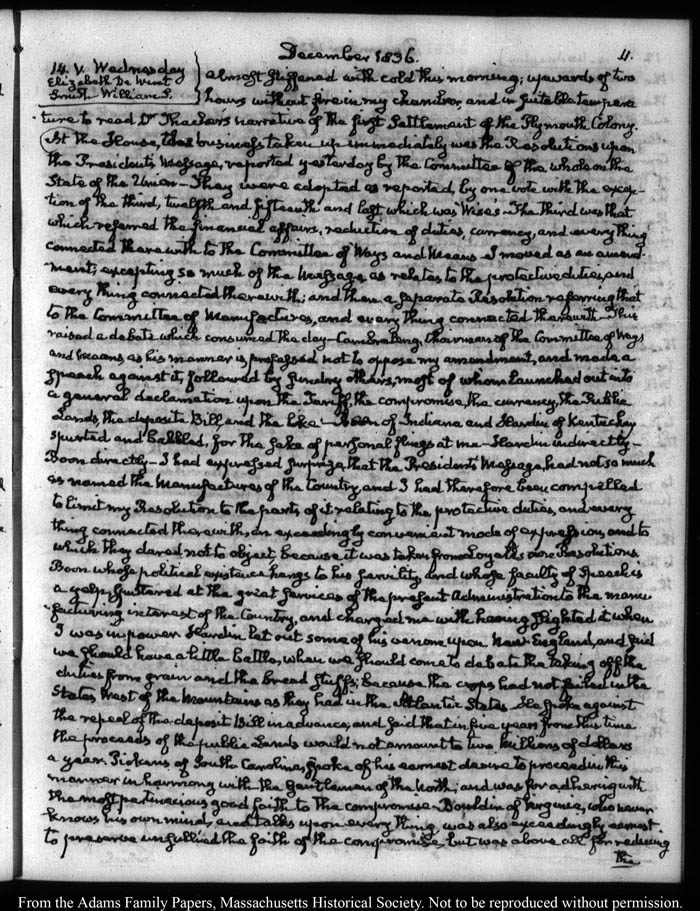 December 1836.
4.
14. V. Wednesday
Elizabeth De Wint
Smith. William S.
almost stiffened with cold this morning; upwards of two
hours without fire in my chamber and in suitable tempera
ture to read Dr Thacher's narrative of the first Settlement of the Plymouth Colony.
At the House, the business taken up immediately was the Resolutions upon
the President's Message, reported yesterday by the Committee of the whole on the
State of the Union— They were adopted as reported, by one vote with the excep-
tion of the third, twelfth and fifteenth and last which was Wise's— The third was that
which referred the financial affairs, reduction of duties, currency, and every thing
connected therewith to the Committee of Ways and Means— I moved as an amend-
ment; excepting so much of the Message as relates to the protective duties, and
every thing connected therewith; and then a separate Resolution referring that
to the Committee of Manufactures, and every thing connected therewith— This
raised a debate which consumed the day— Cambreleng, Chairman of the Committee of Ways
and Means as his manner is professed not to oppose my amendment, and made a
speech against it, followed by sundry others, most of whom launched out into
a general declamation upon the Tariff, the compromise, the currency, the Public
Lands, the deposite Bill, and the like— Boon of Indiana and Hardin of Kentucky
spurted and babbled, for the sake of personal flings at me— Hardin indirectly—
Boon directly— I had expressed surprize, that the President's Message, had not so much
as named the Manufactures of the Country, and I had therefore been compelled
to limit my Resolution to the parts of it relating to the protective duties, and every
thing connected therewith, an exceedingly convenient mode of expression, and to
which they dared not to object, because it was taken from Loyall's own Resolutions
Boon whose political existence hangs to his servility, and whose faculty of Speech is
a yelp, flustered at the great services of the present Administration to the manu-
facturing interest of the Country, and charged me with having slighted it when
I was in power. Hardin let out some of his venom upon New England, and said
we should have a little battle, when we should come to debate the taking off the
duties from grain and the bread stuffs; because the crops had not failed in the
States West of the Mountains as they had in the Atlantic States. He spoke against
the repeal of the deposit Bill in advance, and said that in five years from this time
the proceeds of the public Lands would not amount to two Millions of dollars
a year. Pickens of South Carolina, spoke of his earnest desire to proceed in this
manner in harmony with the Gentlemen of the North; and was for adhering with
the most pertinacious good faith to the compromise— Bouldin of Virginia, who never
knows his own mind, and talks upon every thing, was also exceedingly earnest
to preserve unsullied the faith of the compromise but was above all for reducing
the
From the Adams Family Papers, Massachusetts Historical Society. Not to be reproduced without permission.